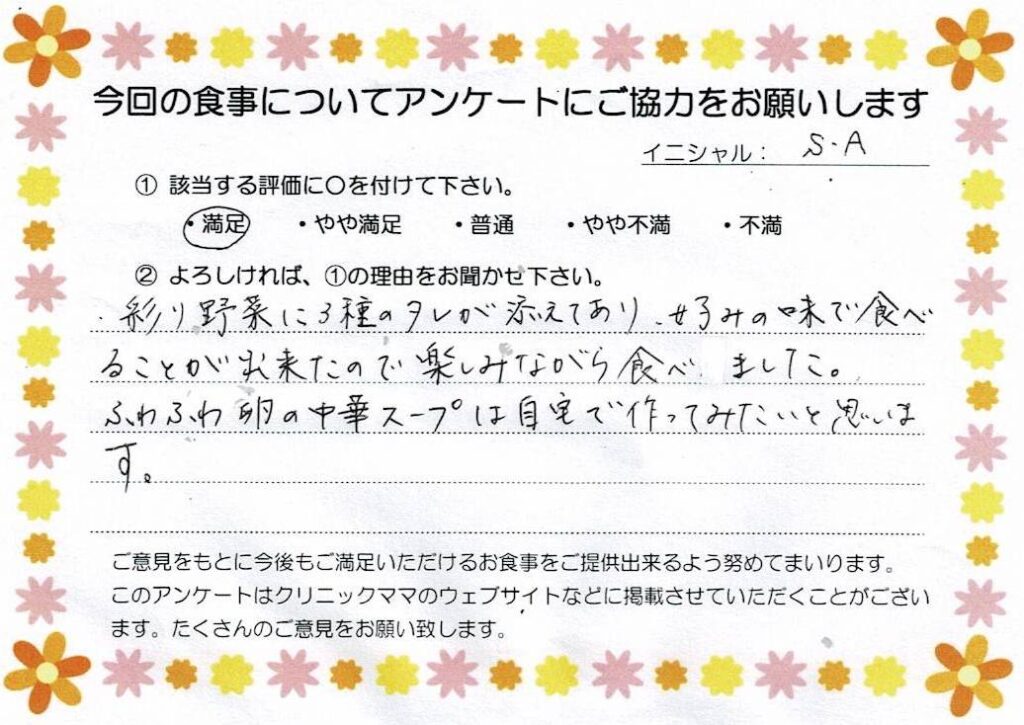 今回の食事についてアンケートにご協力をお願いします
イニシャル： S・A
① 該当する評価に〇を付けて下さい。
・満足 ・やや満足 ・普通 ・やや不満 ・不満
② よろしければ、①の理由をお聞かせ下さい。
・彩り野菜に3種のタレが添えてあり、好みの味で食べ
ることが出来たので楽しみながら食べました。
ふわふわ卵の中華スープは自宅で作ってみたいと思いま
す。
ご意見をもとに今後もご満足いただけるお食事をご提供出来るよう努めてまいります。
このアンケートはクリニックママのウェブサイトなどに掲載させていただくことがござい
ます。たくさんのご意見をお願い致します。